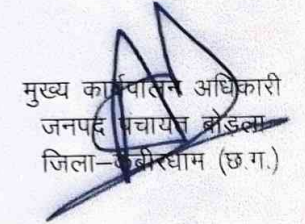 मुख्य कार्यपालन अधिकारी
जनपद पंचायत बोड़ला
जिला–कबीरधाम (छ.ग.)